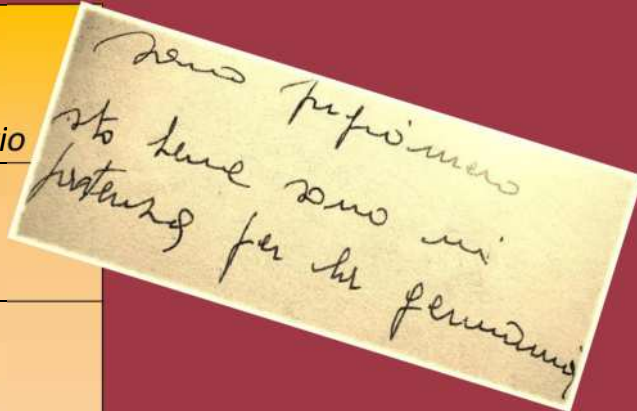 io
sono prigioniero
sto bene sono in
partenza per la germania